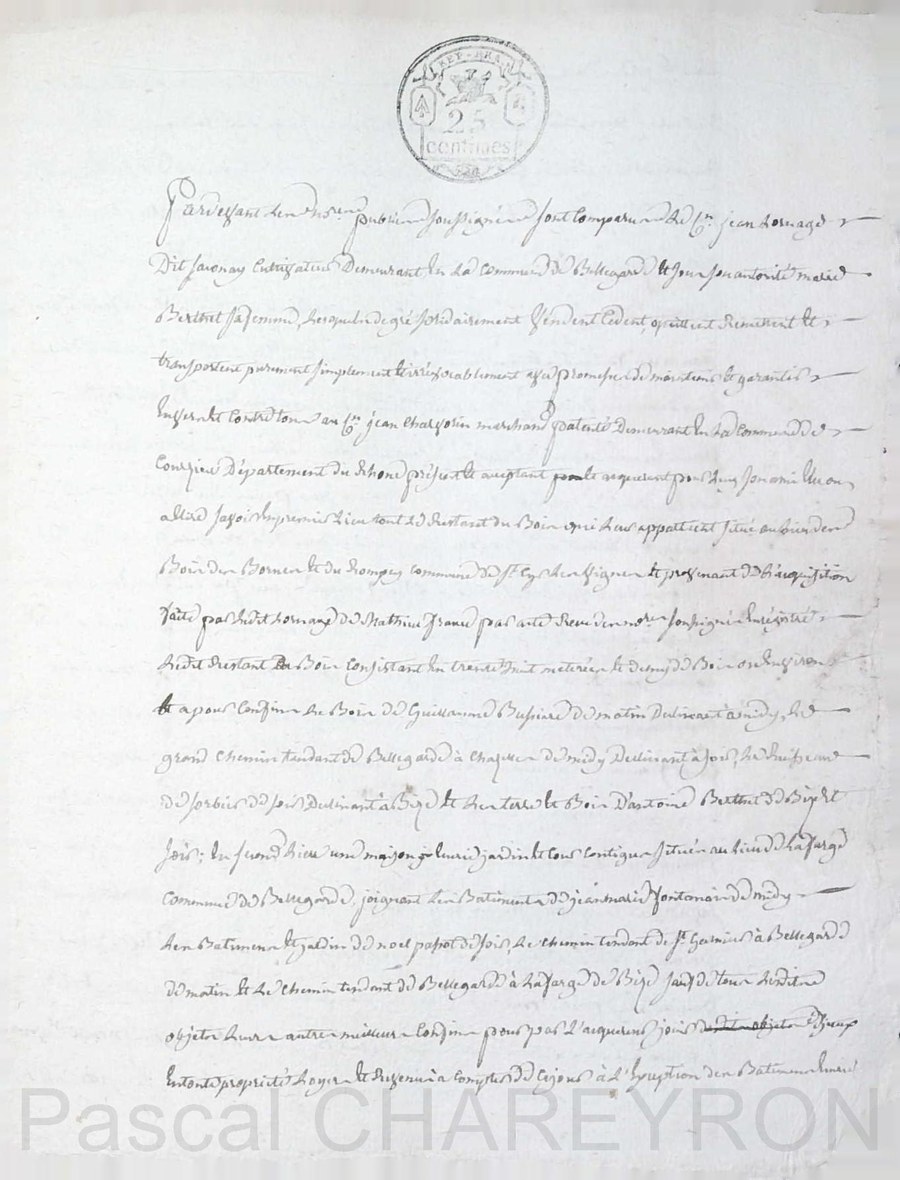 REP. FRA.
25
centimes
Pardevant Les no.res publics soussignés sont Comparus Le C.en jean Lornage
Dit Commune de Bellegarde et sous son autorité marie
Berthet sa femme, Lesquels de gré solidairement Vendent Cedent, quittent Remettent et
transportent purement simplement et irrévocablement avec promesse de maintenir et garantir
Envers et Contre tous au C.en jean marchand patenté Demeurant En La Commune de
Courzieu Département du Rhone présent et acceptant et acquerant pour Luy Son ami Elu ou
a Elire savoir En premier Lieu tout Le Restant du Bois qui Leur appartient situé au Lieu des
Bois des Bornes et du Commune de S.t Cyr Les Vignes et provenant de L'acquisition
faite par Ledit Lornage De Mathieu par acte Reçu des no.res soussignés Enregistré
Ledit Restant de Bois Consistant En trente huit meterées et demy de Bois ou Environ
Et a pour Confins Le Bois de Guillaume de matin Declinant à midy, Le
grand Chemin tendant de Bellegarde à de midy Declinant à soir, Le Ruisseau
de sorbier de soir Declinant à Bize Et Les terre et Bois D'antoine Berthet de Bize Et
soir; En second Lieu une maison jardin Et Cour Contigus situés au Lieu de Lafarge
Commune de Bellegarde, joignant Les Batiments de jean marie fontanay de midy
Les Batimens Et jardin de noel de soir, Le Chemin tendant de S.t à Bellegarde
de matin Et Le Chemin tendant de Bellegarde à Lafarge de Bize sauf de tous Lesdits
objets Leurs autres meilleurs Confins pour par L'acquereur jouir desdits objets
En toute propriété Loyers Et Revenus à Compter de Cejour à L'Exception des Batimens
Pascal CHAREYRON